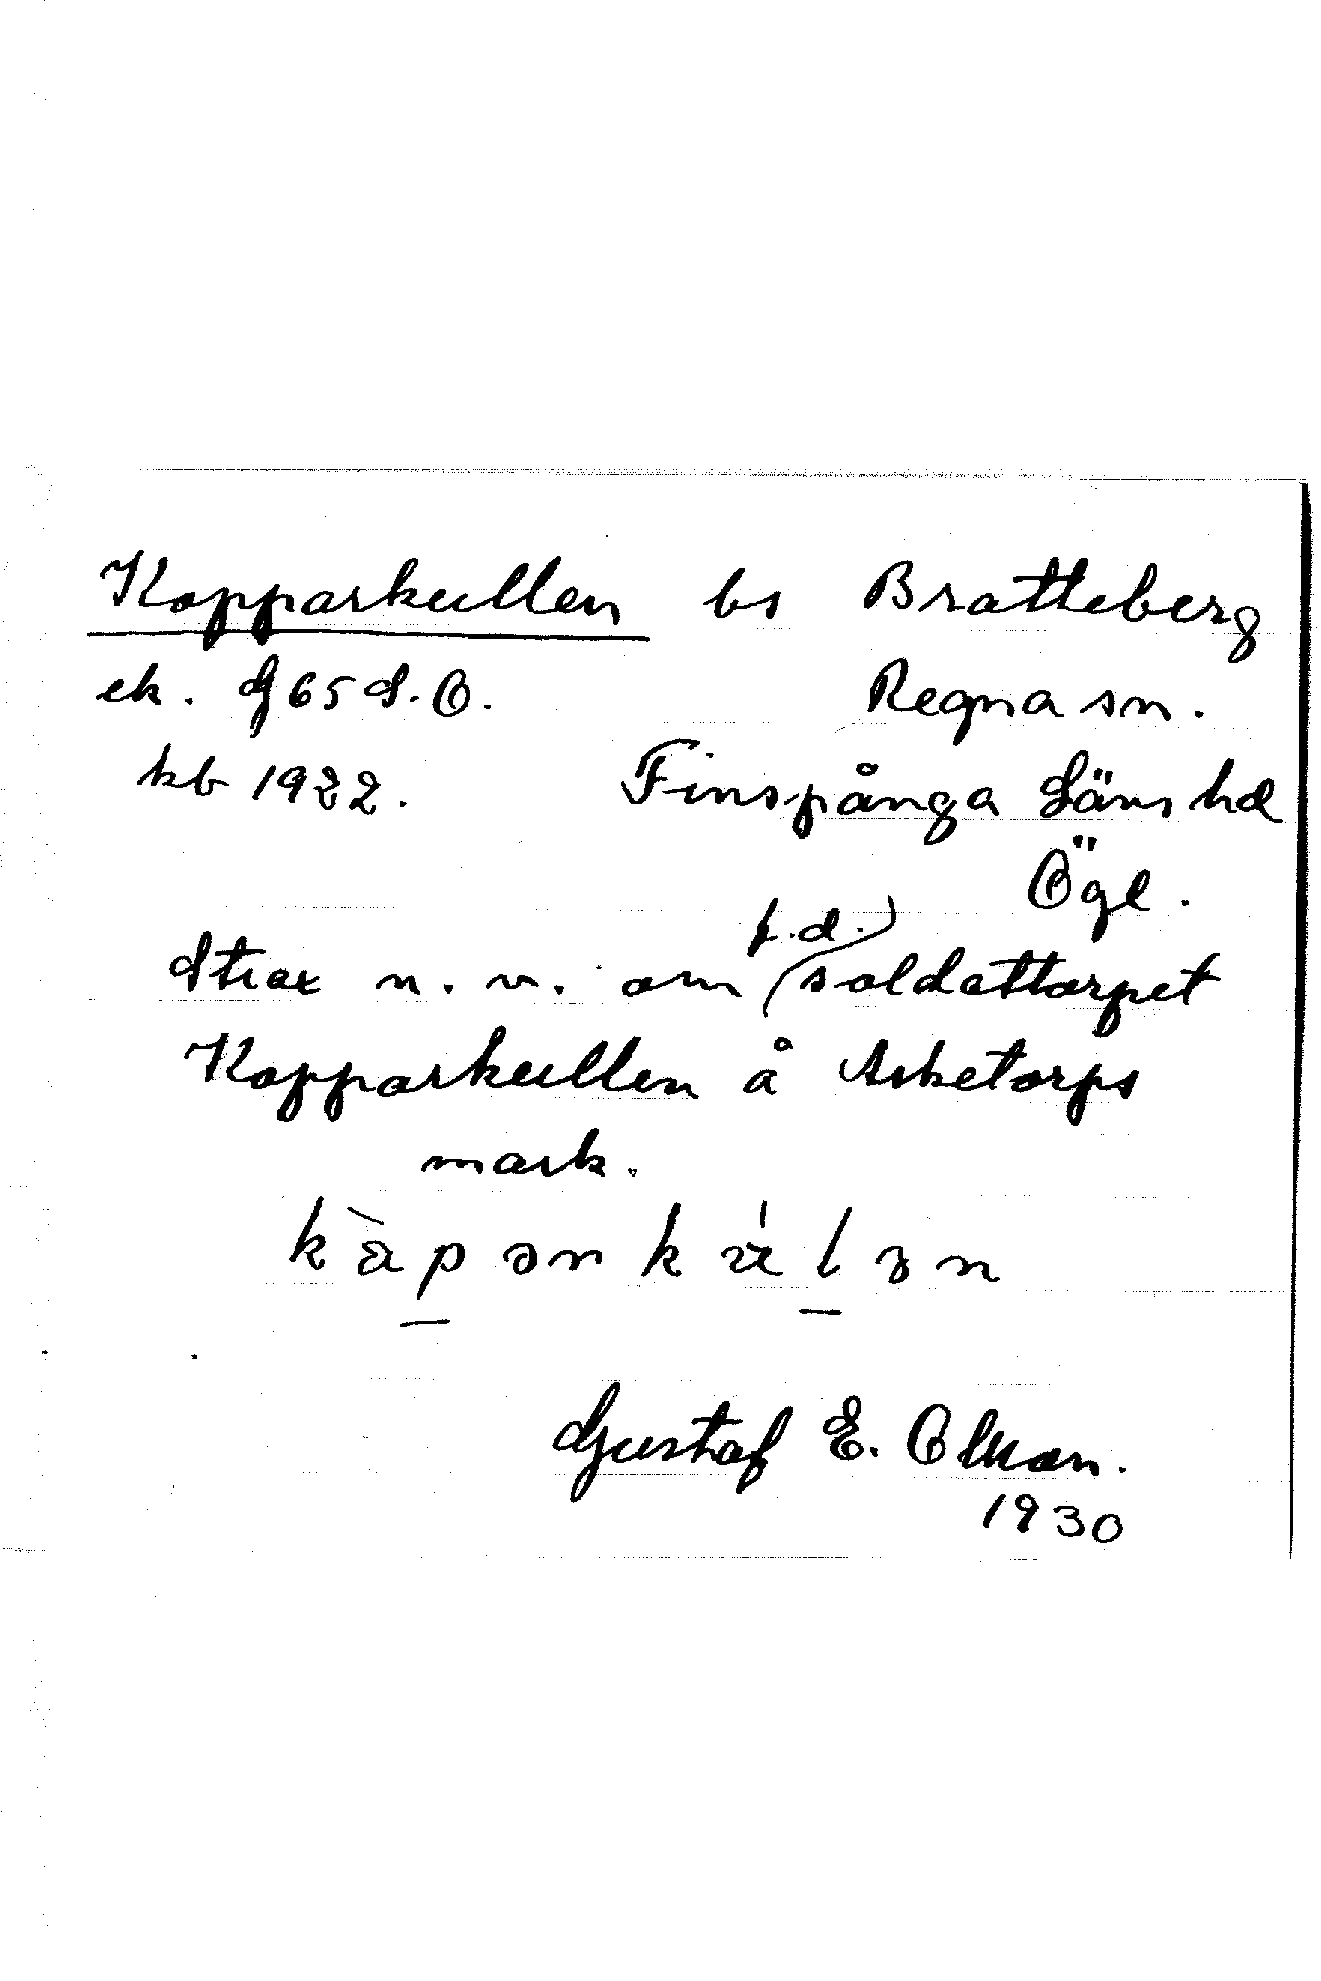 Kopparkullen bs Bratteberg
ek. G 65 S.O. Regna sn.
kb 1922. Finspånga Läns hd
Ögl.
Strax n. v. om (f.d.) soldattorpet
Kopparkullen å Asketorps
mark.
Gustaf E. Olsson.
1930